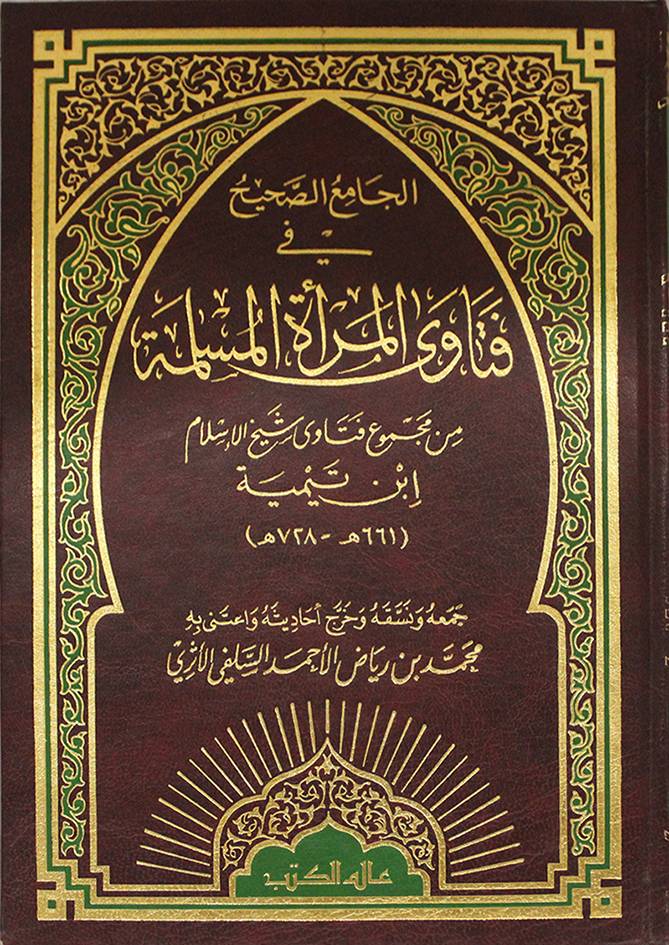 الجامع الصحيح
في
فتاوى المرأة المسلمة
من مجموع فتاوى شيخ الإسلام
ابن تيمية
(٦٦١هـ - ٧٢٨هـ)
جمعه ونسقه وخرج أحاديثه واعتنى به
محمد بن رياض الأحمد السلفي الأثري
عالم الكتب